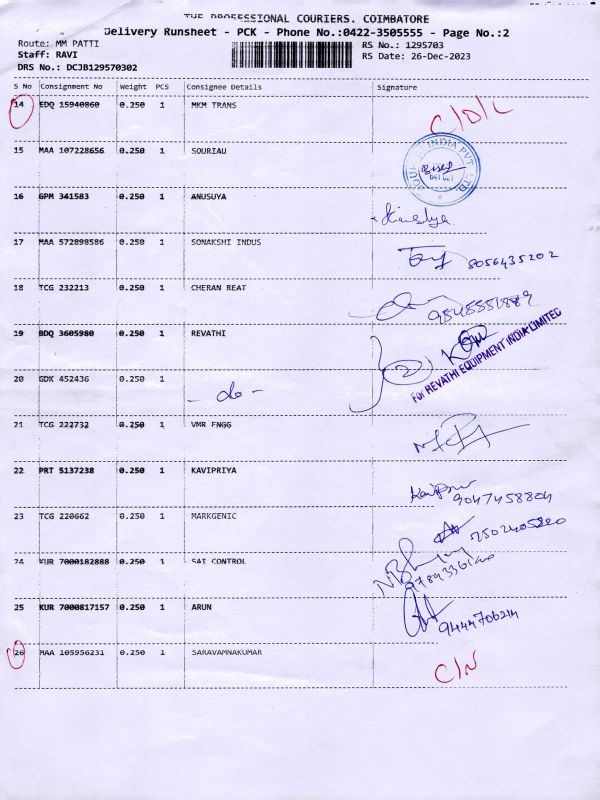 THE PROFESSIONAL COURIERS. COIMBATORE
Delivery Runsheet - PCK - Phone No.:0422-3505555 - Page No.:2
Route: MM PATTI RS No.: 1295703
Staff: RAVI RS Date: 26-Dec-2023
DRS No.: DCJB129570302
S No Consignment No Weight PCS Consignee Details Signature
14 EDQ 15940860 0.250 1 MKM TRANS C/D/L
15 MAA 107228656 0.250 1 SOURIAU
INDIA PVT. LTD.
16 GPM 341583 0.250 1 ANUSUYA
17 MAA 572898586 0.250 1 SONAKSHI INDUS 8056435202
18 TCG 232213 0.250 1 CHERAN REAT
19 BDQ 3605980 0.250 1 REVATHI
2
For REVATHI EQUIPMENT INDIA LIMITED
20 GDK 452436 0.250 1 - do -
21 TCG 222732 0.250 1 VMR ENGG
22 PRT 5137238 0.250 1 KAVIPRIYA
9047458804
23 TCG 220662 0.250 1 MARKGENIC
24 KUR 7000182888 0.250 1 SAI CONTROL
25 KUR 7000817157 0.250 1 ARUN
26 MAA 105956231 0.250 1 SARAVAMNAKUMAR C/N